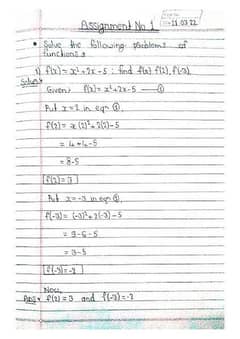 Assignment No 1
21 03 22
• Solve the following problems of
functions :
1) f(x) = x²+2x-5 ; find f(x) f(2), f(-3).
Soln:→
Given: f(x) = x²+2x-5 —— ①
Put x=2 in eqn ①.
f(2) = x(2)²+2(2)-5
= 4+4-5
= 8-5
f(2) = 3
Put x=-3 in eqn ①.
f(-3) = (-3)²+2(-3)-5
= 9-6-5
= 3-5
f(-3)=-2
Now,
Ans:→ f(2) = 3 and f(-3)=-2